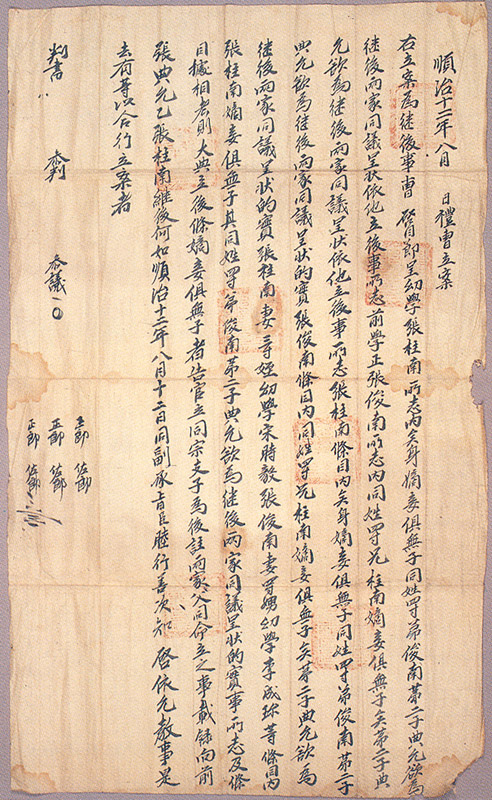 順治十二年八月 日禮曹立案
右立案爲継後事曹 啓目卽呈幼學張柱南所志內矣身嫡妾俱無子同姓四寸弟俊南第二子典允欲爲
継後兩家同議呈狀依他立後事所志前學正張俊南所志內同姓四寸兄柱南嫡妾俱無子矣第二子典
允欲爲継後兩家同議呈狀依他立後事所志張柱南條目內矣身嫡妾俱無子同姓四寸弟俊南第二子
典允欲爲継後兩家同議呈狀的實張俊南條目內同姓四寸兄柱南嫡妾俱無子矣第二子典允欲爲
継後兩家同議呈狀的實張柱南妻三寸姪幼學宋時毅張俊南妻四寸甥幼學李成珎等條目內
張柱南嫡妾俱無子其同姓四寸弟俊南第二子典允欲爲継後兩家同議呈狀的實事所志及條
目據相考則大典立後條嫡妾俱無子者告官立同宗支子爲後註兩家父同命立之事載錄向前
張典允乙張柱南継後何如順治十二年八月十二日同副承旨臣睦行善次知 啓依允敎事是
去有等以合行立案者
判書 參判 參議 正郞 佐郞
正郞 佐郞
正郞 佐郞